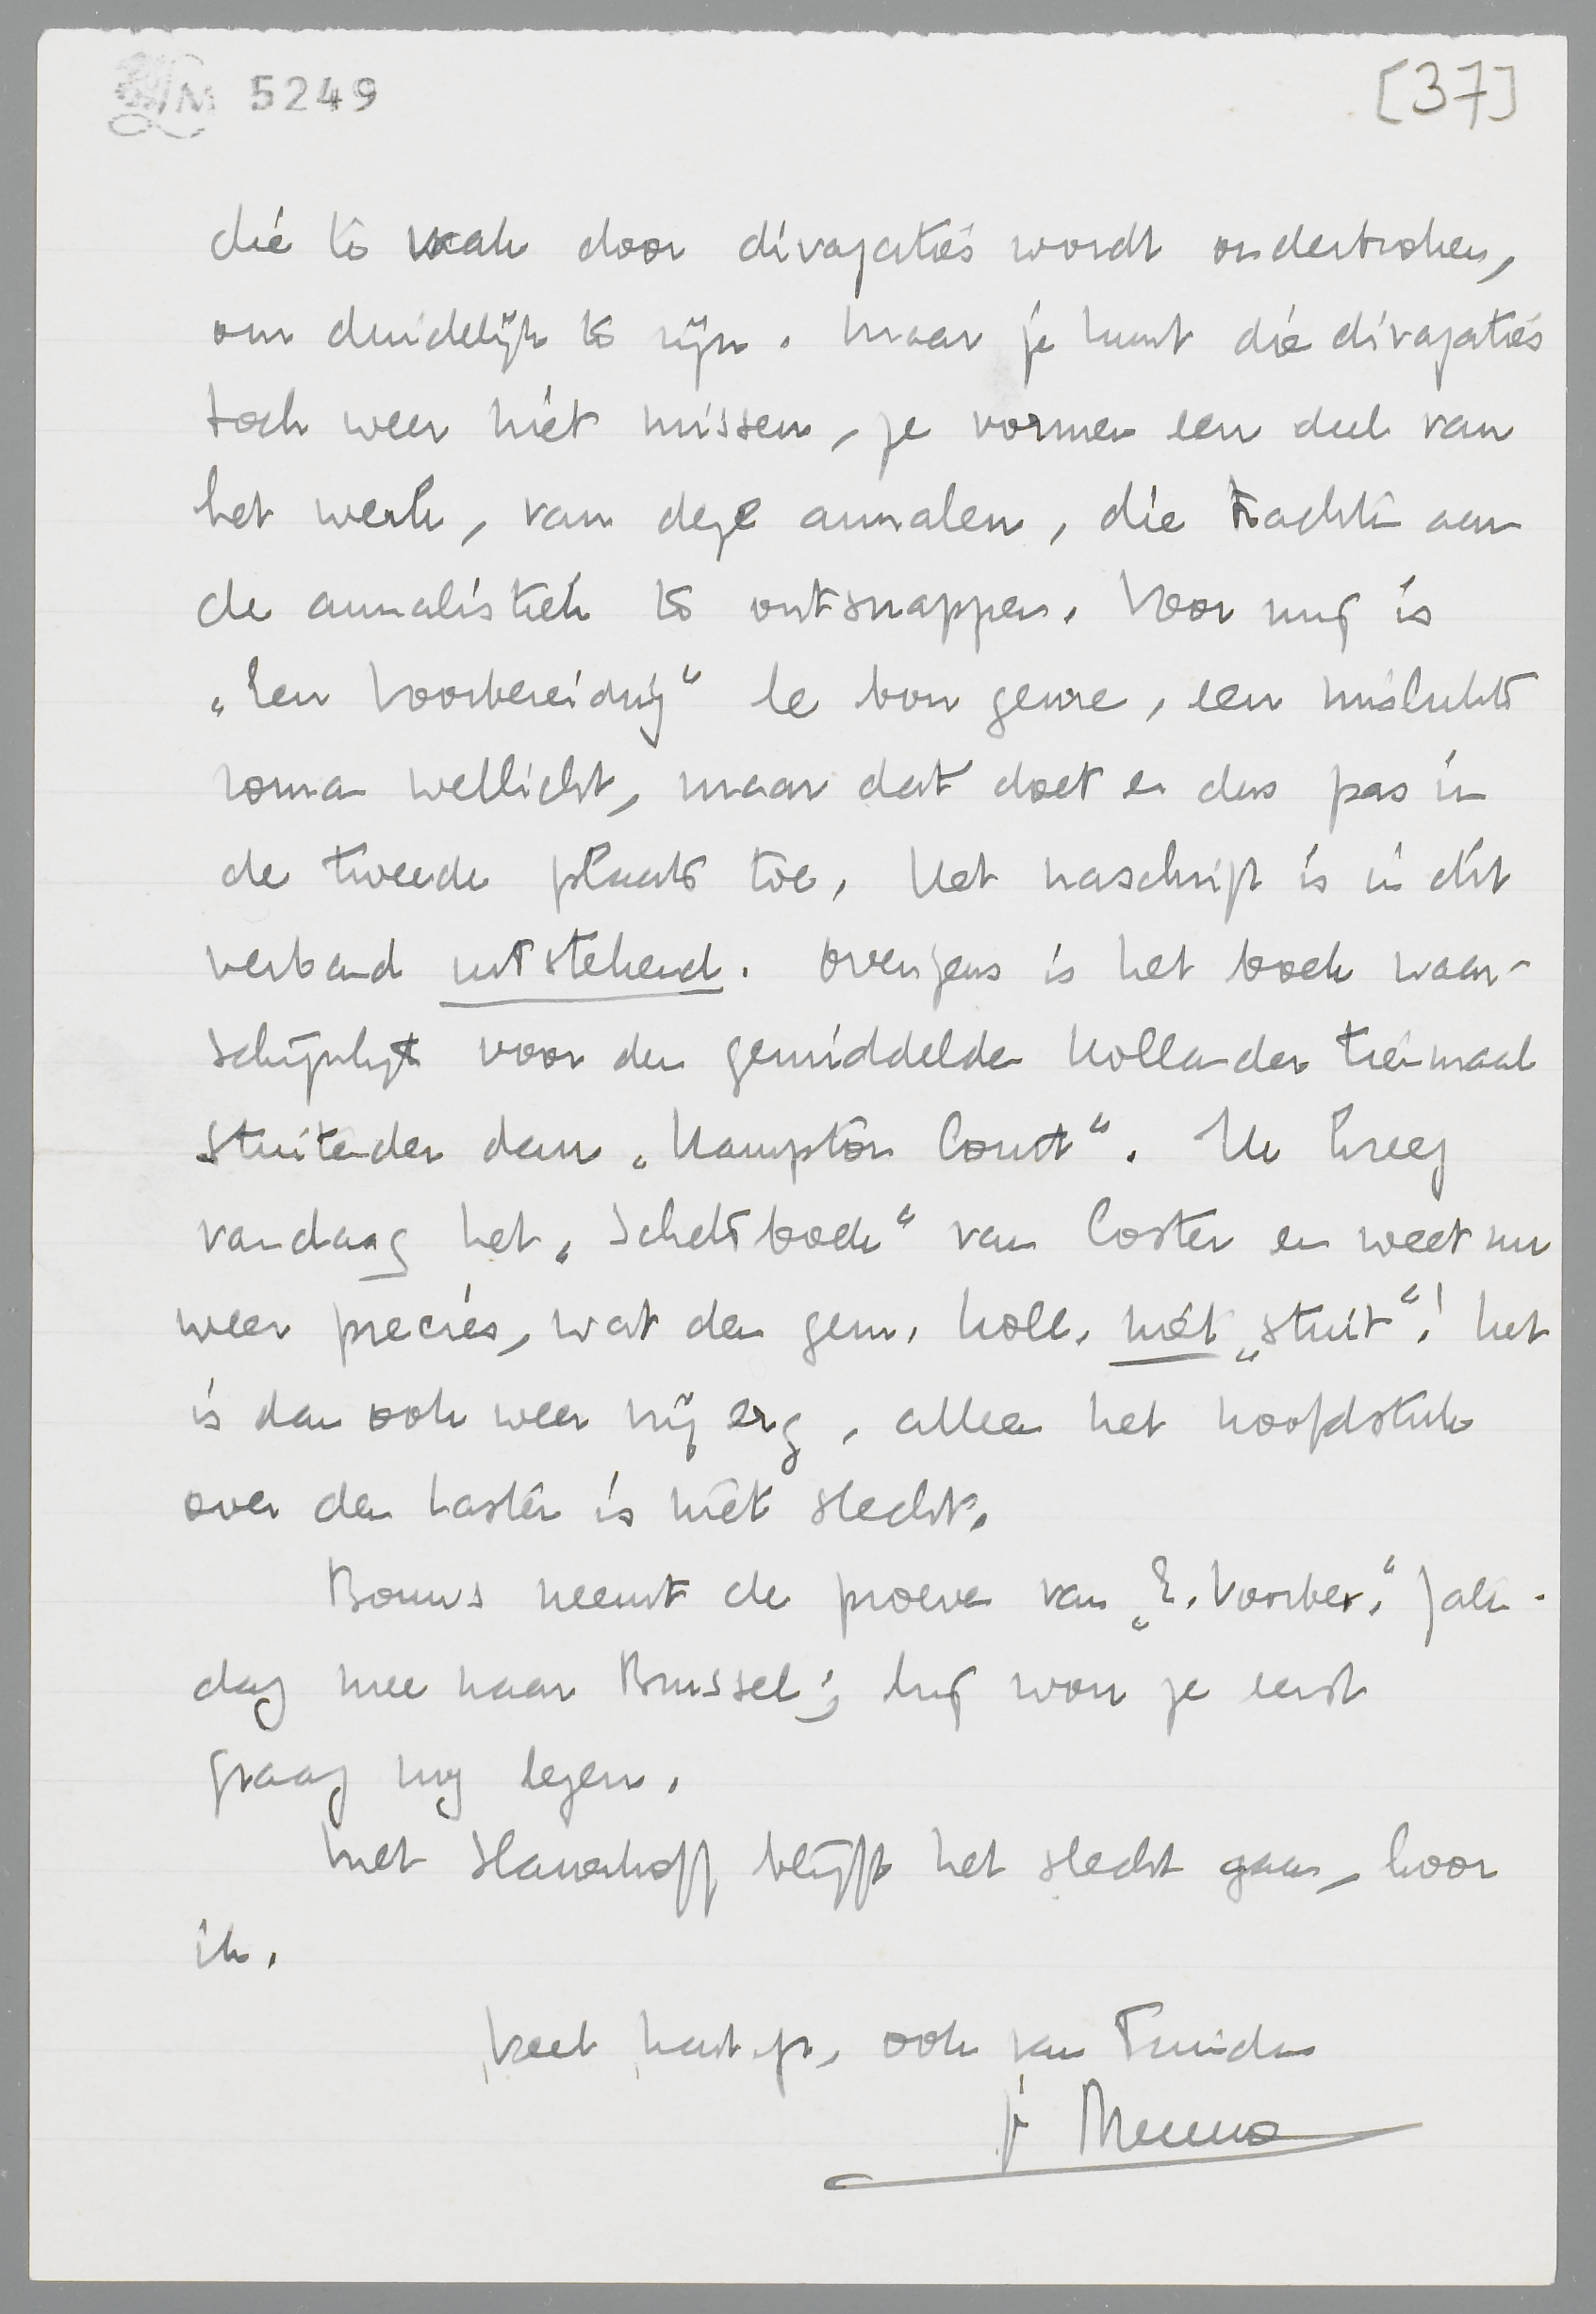 LM 5249
[37]
die te vaak door divagaties wordt onderbroken,
om duidelijk te zijn. Maar je kunt die divagaties
toch weer niet missen, ze vormen een deel van
het werk, van deze annalen, die trachten aan
de annalistiek te ontsnappen. Voor mij is
„Een Voorbereiding“ le bon genre, een mislukte
roman wellicht, maar dat doet er dus pas in
de tweede plaats toe. Het naschrift is in dit
verband uitstekend. Overigens is het boek waar-
schijnlijk voor den gemiddelden Hollander tienmaal
stuitender dan „Hampton Court“. Ik kreeg
vandaag het „Schetsboek“ van Coster en weet nu
weer precies, wat den gem. holl. niét „stuit“! Het
is dan ook weer vrij erg, alleen het hoofdstuk
over den laster is niet slecht.
Bouws neemt de proeven van „E. Voorber.“ Zater-
dag mee naar Brussel; hij wou ze eerst
graag nog lezen.
Met Slauerhoff blijft het slecht gaan, hoor
ik.
Veel hartel.gr., ook van Truida
je Menno